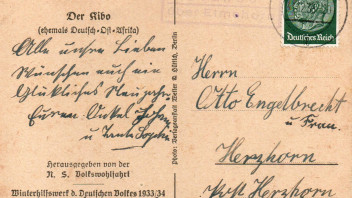 Der Kibo
(ehemals Deutsch-Ost-Afrika)
Alle unsre Lieben
Wünschen auch ein
Glückliches Neujahr
Euren Onkel
u Tante Sophie
Herausgegeben von der
N. S. Volkswohlfahrt
Winterhilfswerk d. Deutschen Volkes 1933/34
Photo: Verlagsanstalt Weller & Hüttich, Berlin
Deutsches Reich
Herrn
Otto Engelbrecht
u Frau.
Herzhorn
Post Herzhorn